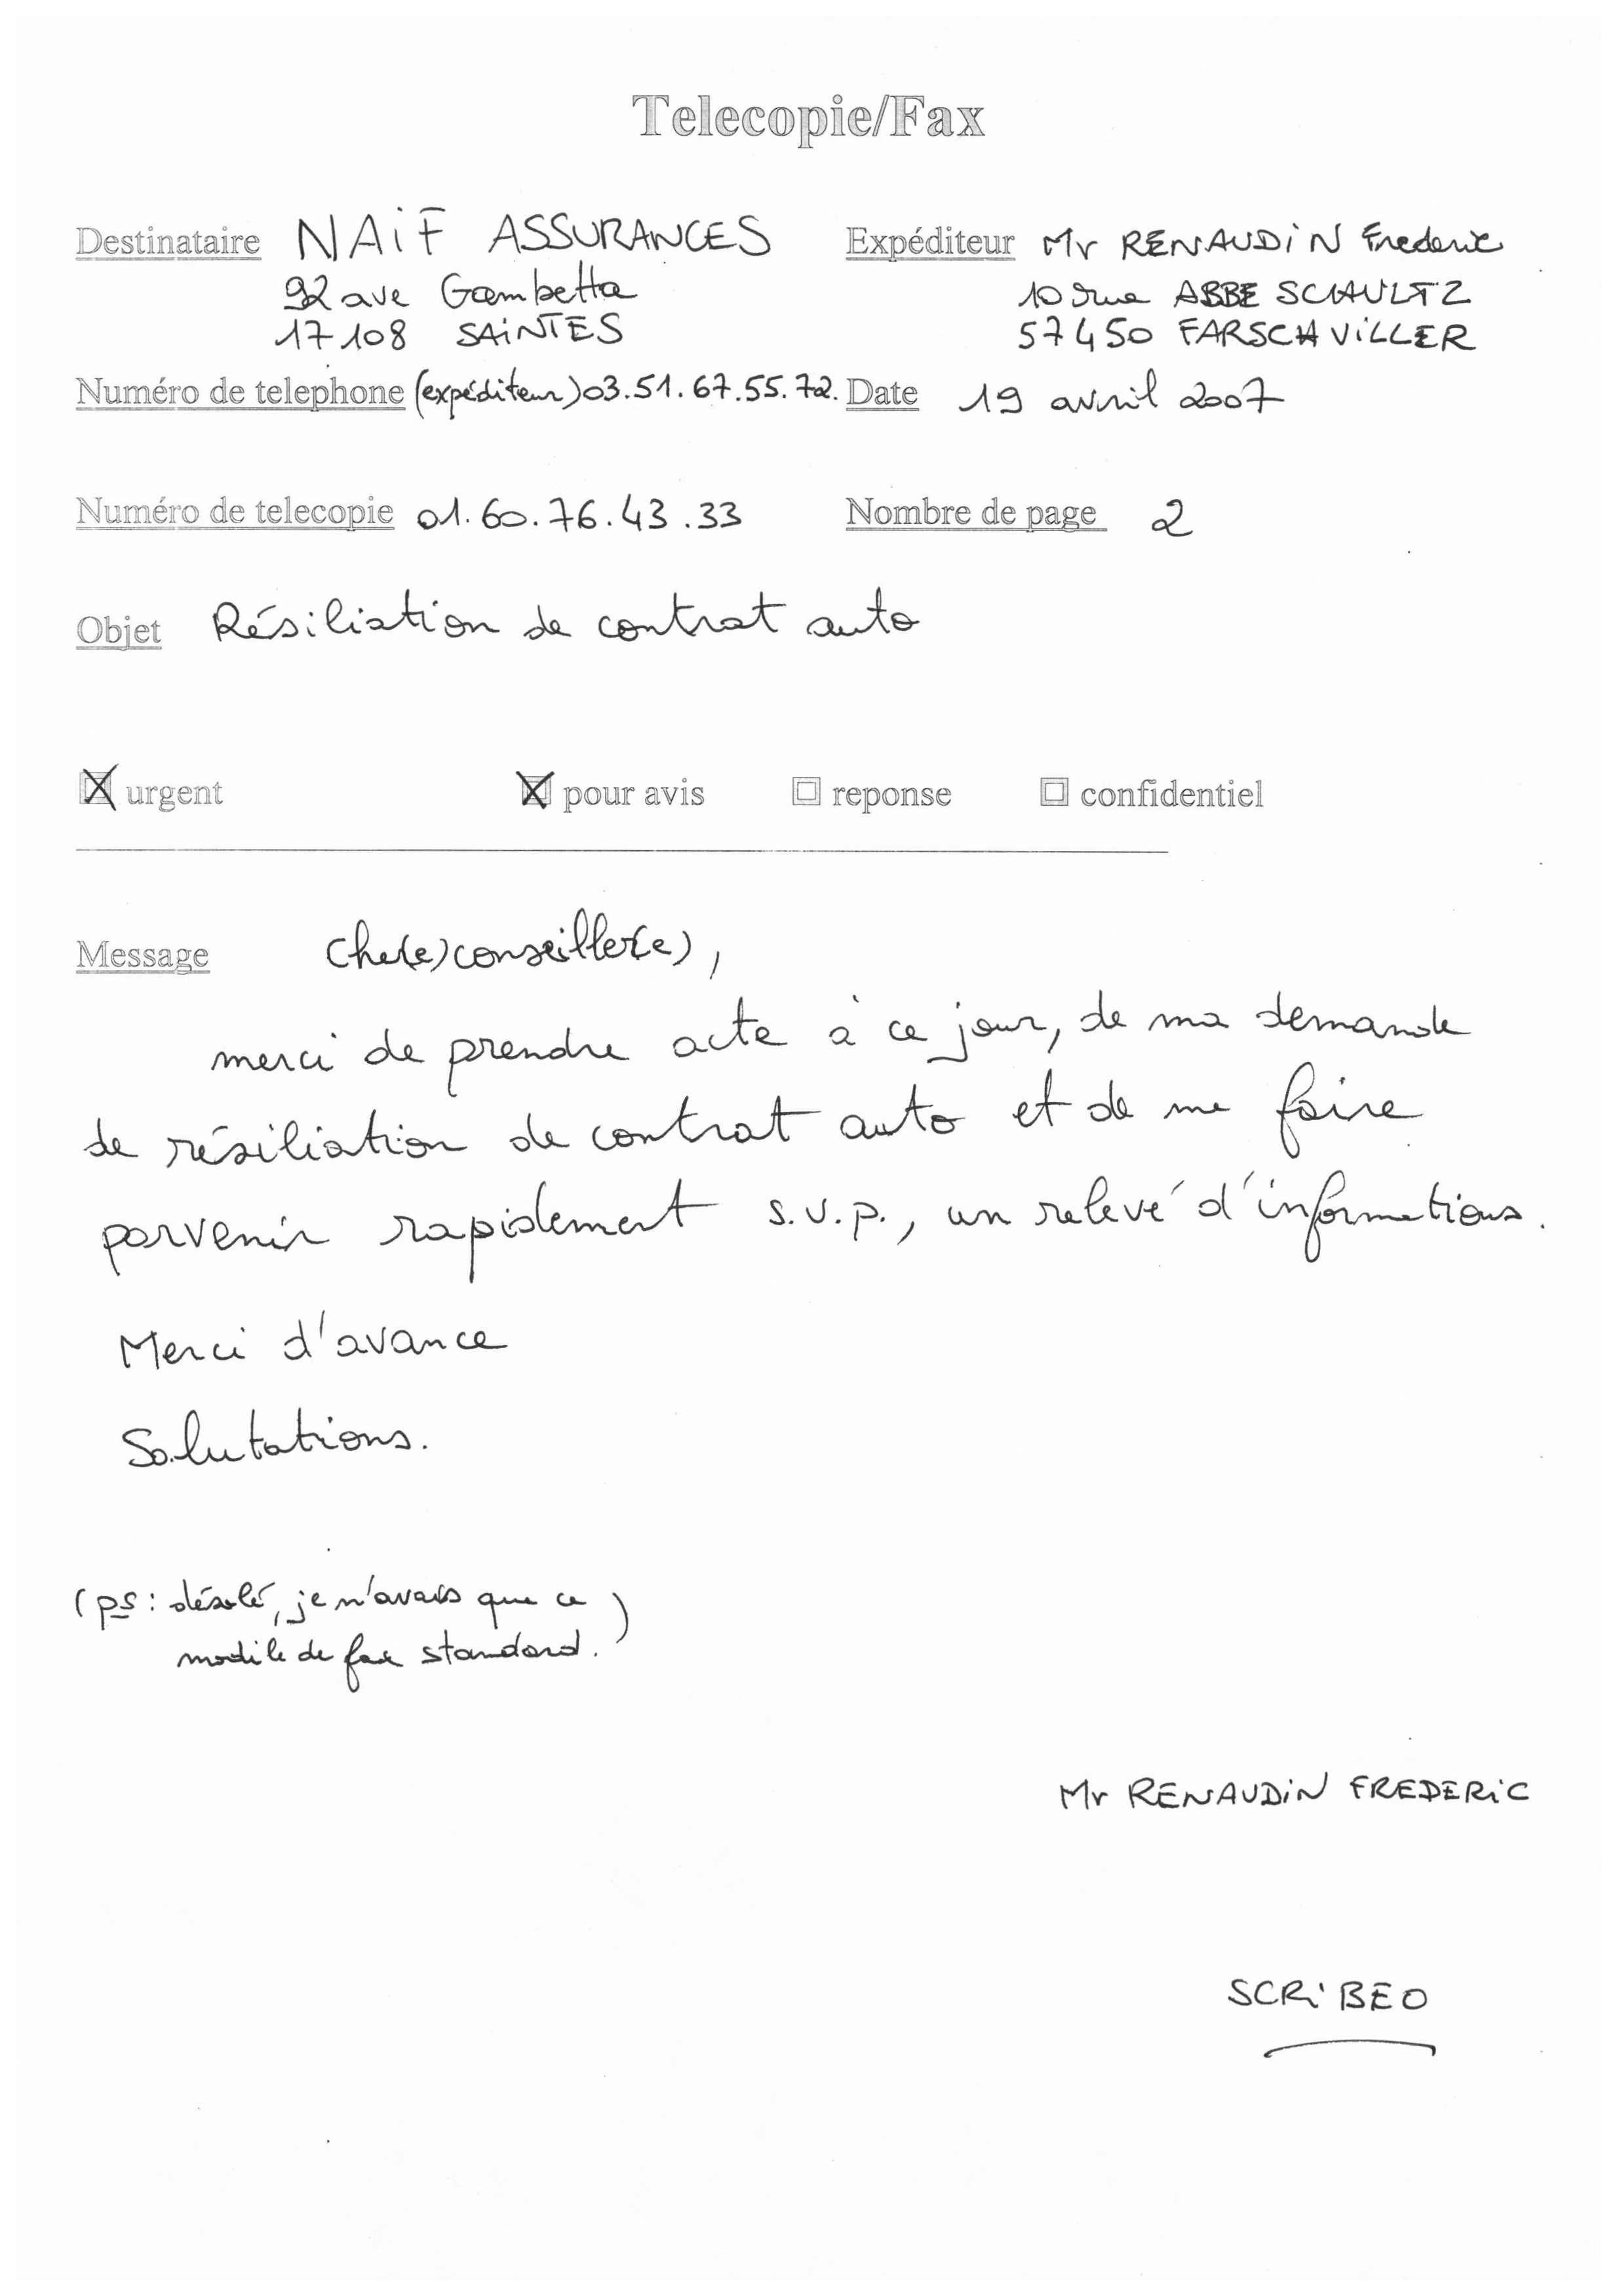 Telecopie/Fax
Destinataire NAiF ASSURANCES
92 ave Gambetta
17108 SAiNTES
Expéditeur Mr RENAUDiN Frederic
10 rue ABBE SCHAULTZ
57450 FARSCHViLLER
Numéro de telephone (expéditeur) 03.51.67.55.72. Date 19 avril 2007
Numéro de telecopie 01.60.76.43.33 Nombre de page 2
Objet Résiliation de contrat auto
urgent pour avis reponse confidentiel
Message Cher(e) conseiller(e),
merci de prendre acte à ce jour, de ma demande
de résiliation de contrat auto et de me faire
parvenir rapidement s.v.p., un relevé d'informations.
Merci d'avance
Salutations.
(ps : désolé, je n'avais que ce
modèle de fax standard.)
Mr RENAUDiN FREDERiC
SCRiBEO